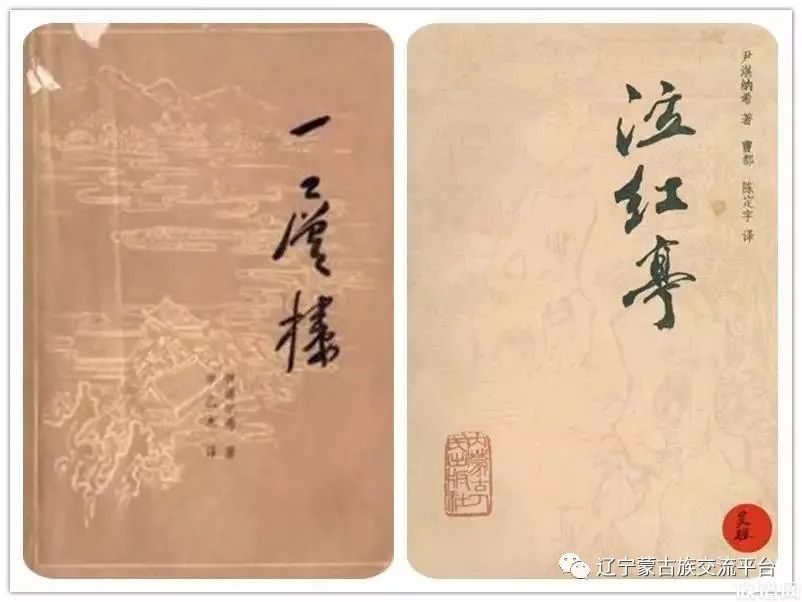 一層樓
尹湛纳希 著
甲乙木 译
尹湛纳希 著 曹都 陈定宇 译
泣红亭
内蒙古人民出版社
辽宁蒙古族交流平台
族谱网